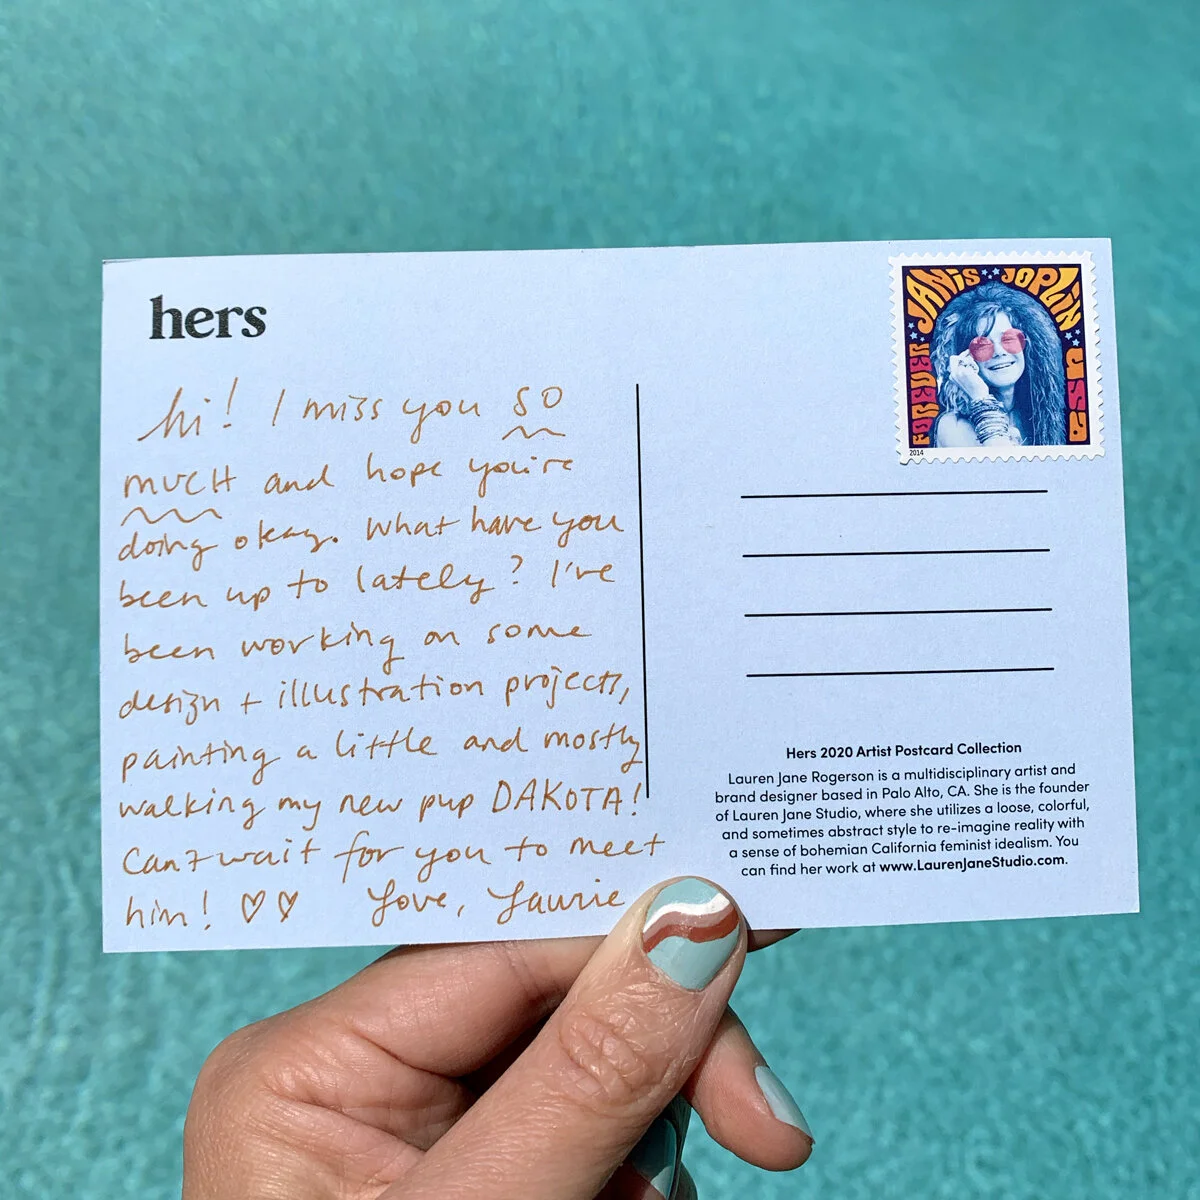 hers
hi! I miss you SO
MUCH and hope you're
doing okay. What have you
been up to lately? I've
been working on some
design + illustration projects,
painting a little and mostly
walking my new pup DAKOTA!
Can't wait for you to meet
him! ♡♡ Love, Laurie
FOREVER JANIS JOPLIN USA
2014
Hers 2020 Artist Postcard Collection
Lauren Jane Rogerson is a multidisciplinary artist and
brand designer based in Palo Alto, CA. She is the founder
of Lauren Jane Studio, where she utilizes a loose, colorful,
and sometimes abstract style to re-imagine reality with
a sense of bohemian California feminist idealism. You
can find her work at www.LaurenJaneStudio.com.